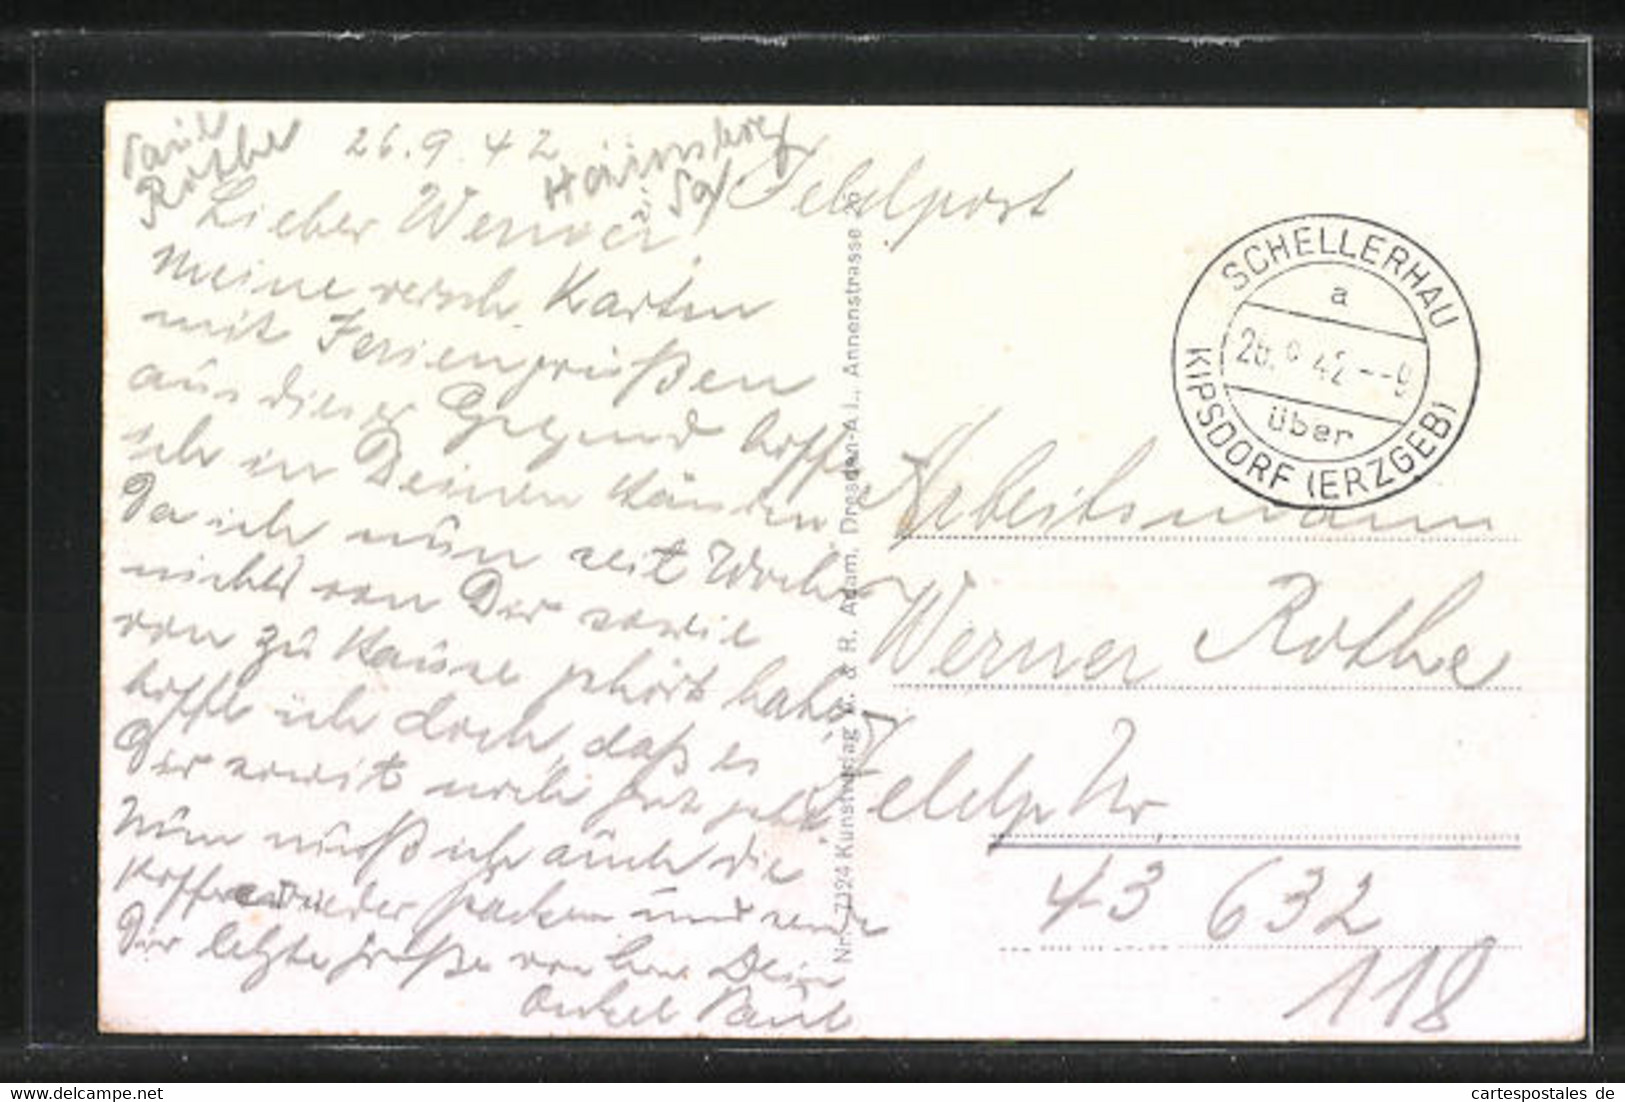 Paul
Rothe
26.9.42
Hainsberg
Sa
Lieber Werner!
Meine versch Karten
mit Feriengrüßen
aus dieser Gegend hoffe
ich in Deinen Händen
Da ich nun seit Wochen
nichts von Dir sowie
von zu Hause gehört habe,
hoffe ich doch, daß es
Dir soweit noch gut geht.
Nun muß ich auch die
Koffer wieder packen und sende
Dir letzte Grüße von hier Dein
Onkel Paul
Nr. 7324 Kunstverlag E. & R. Adam, Dresden-A 1., Annenstrasse 26
Feldpost
SCHELLERHAU
a
26.9.42--9
über
KIPSDORF (ERZGEB)
Arbeitsmann
Werner Rothe
Feldp Nr.
43 632
118
cartespostales de